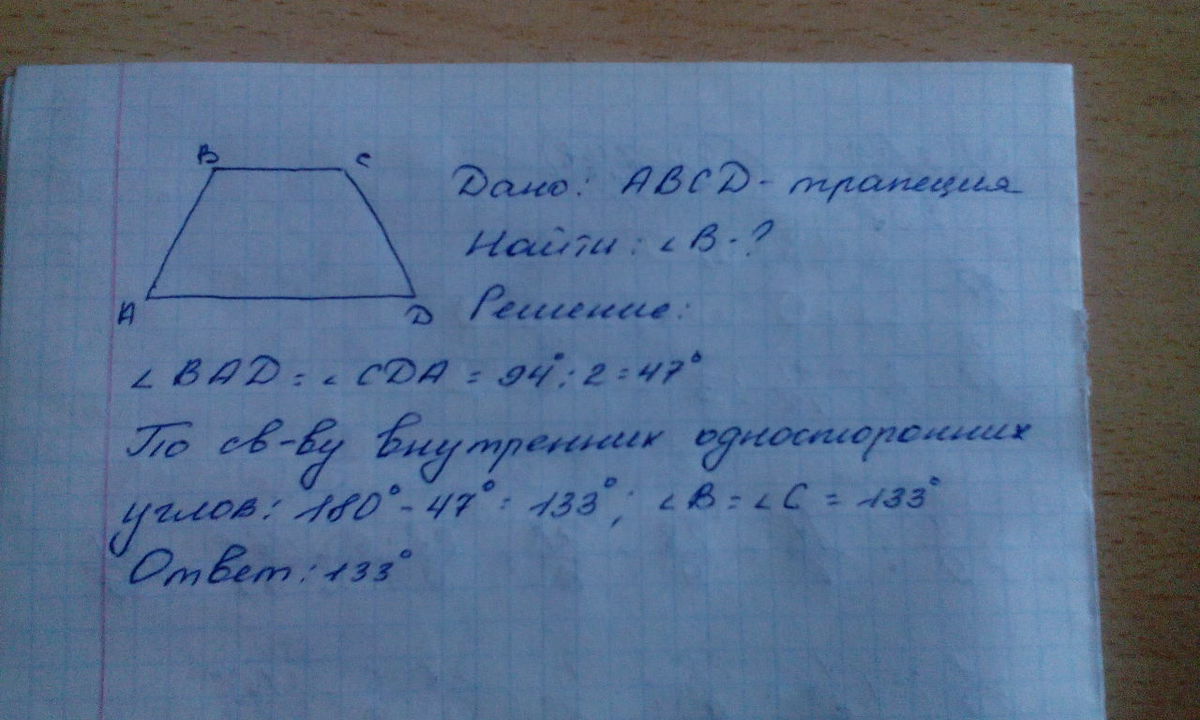 B C
Дано: ABCD - трапеция
Найти: ∠B - ?
A D Решение:
∠BAD = ∠CDA = 94° : 2 = 47°
По св-ву внутренних односторонних
углов: 180° - 47° = 133°; ∠B = ∠C = 133°
Ответ: 133°